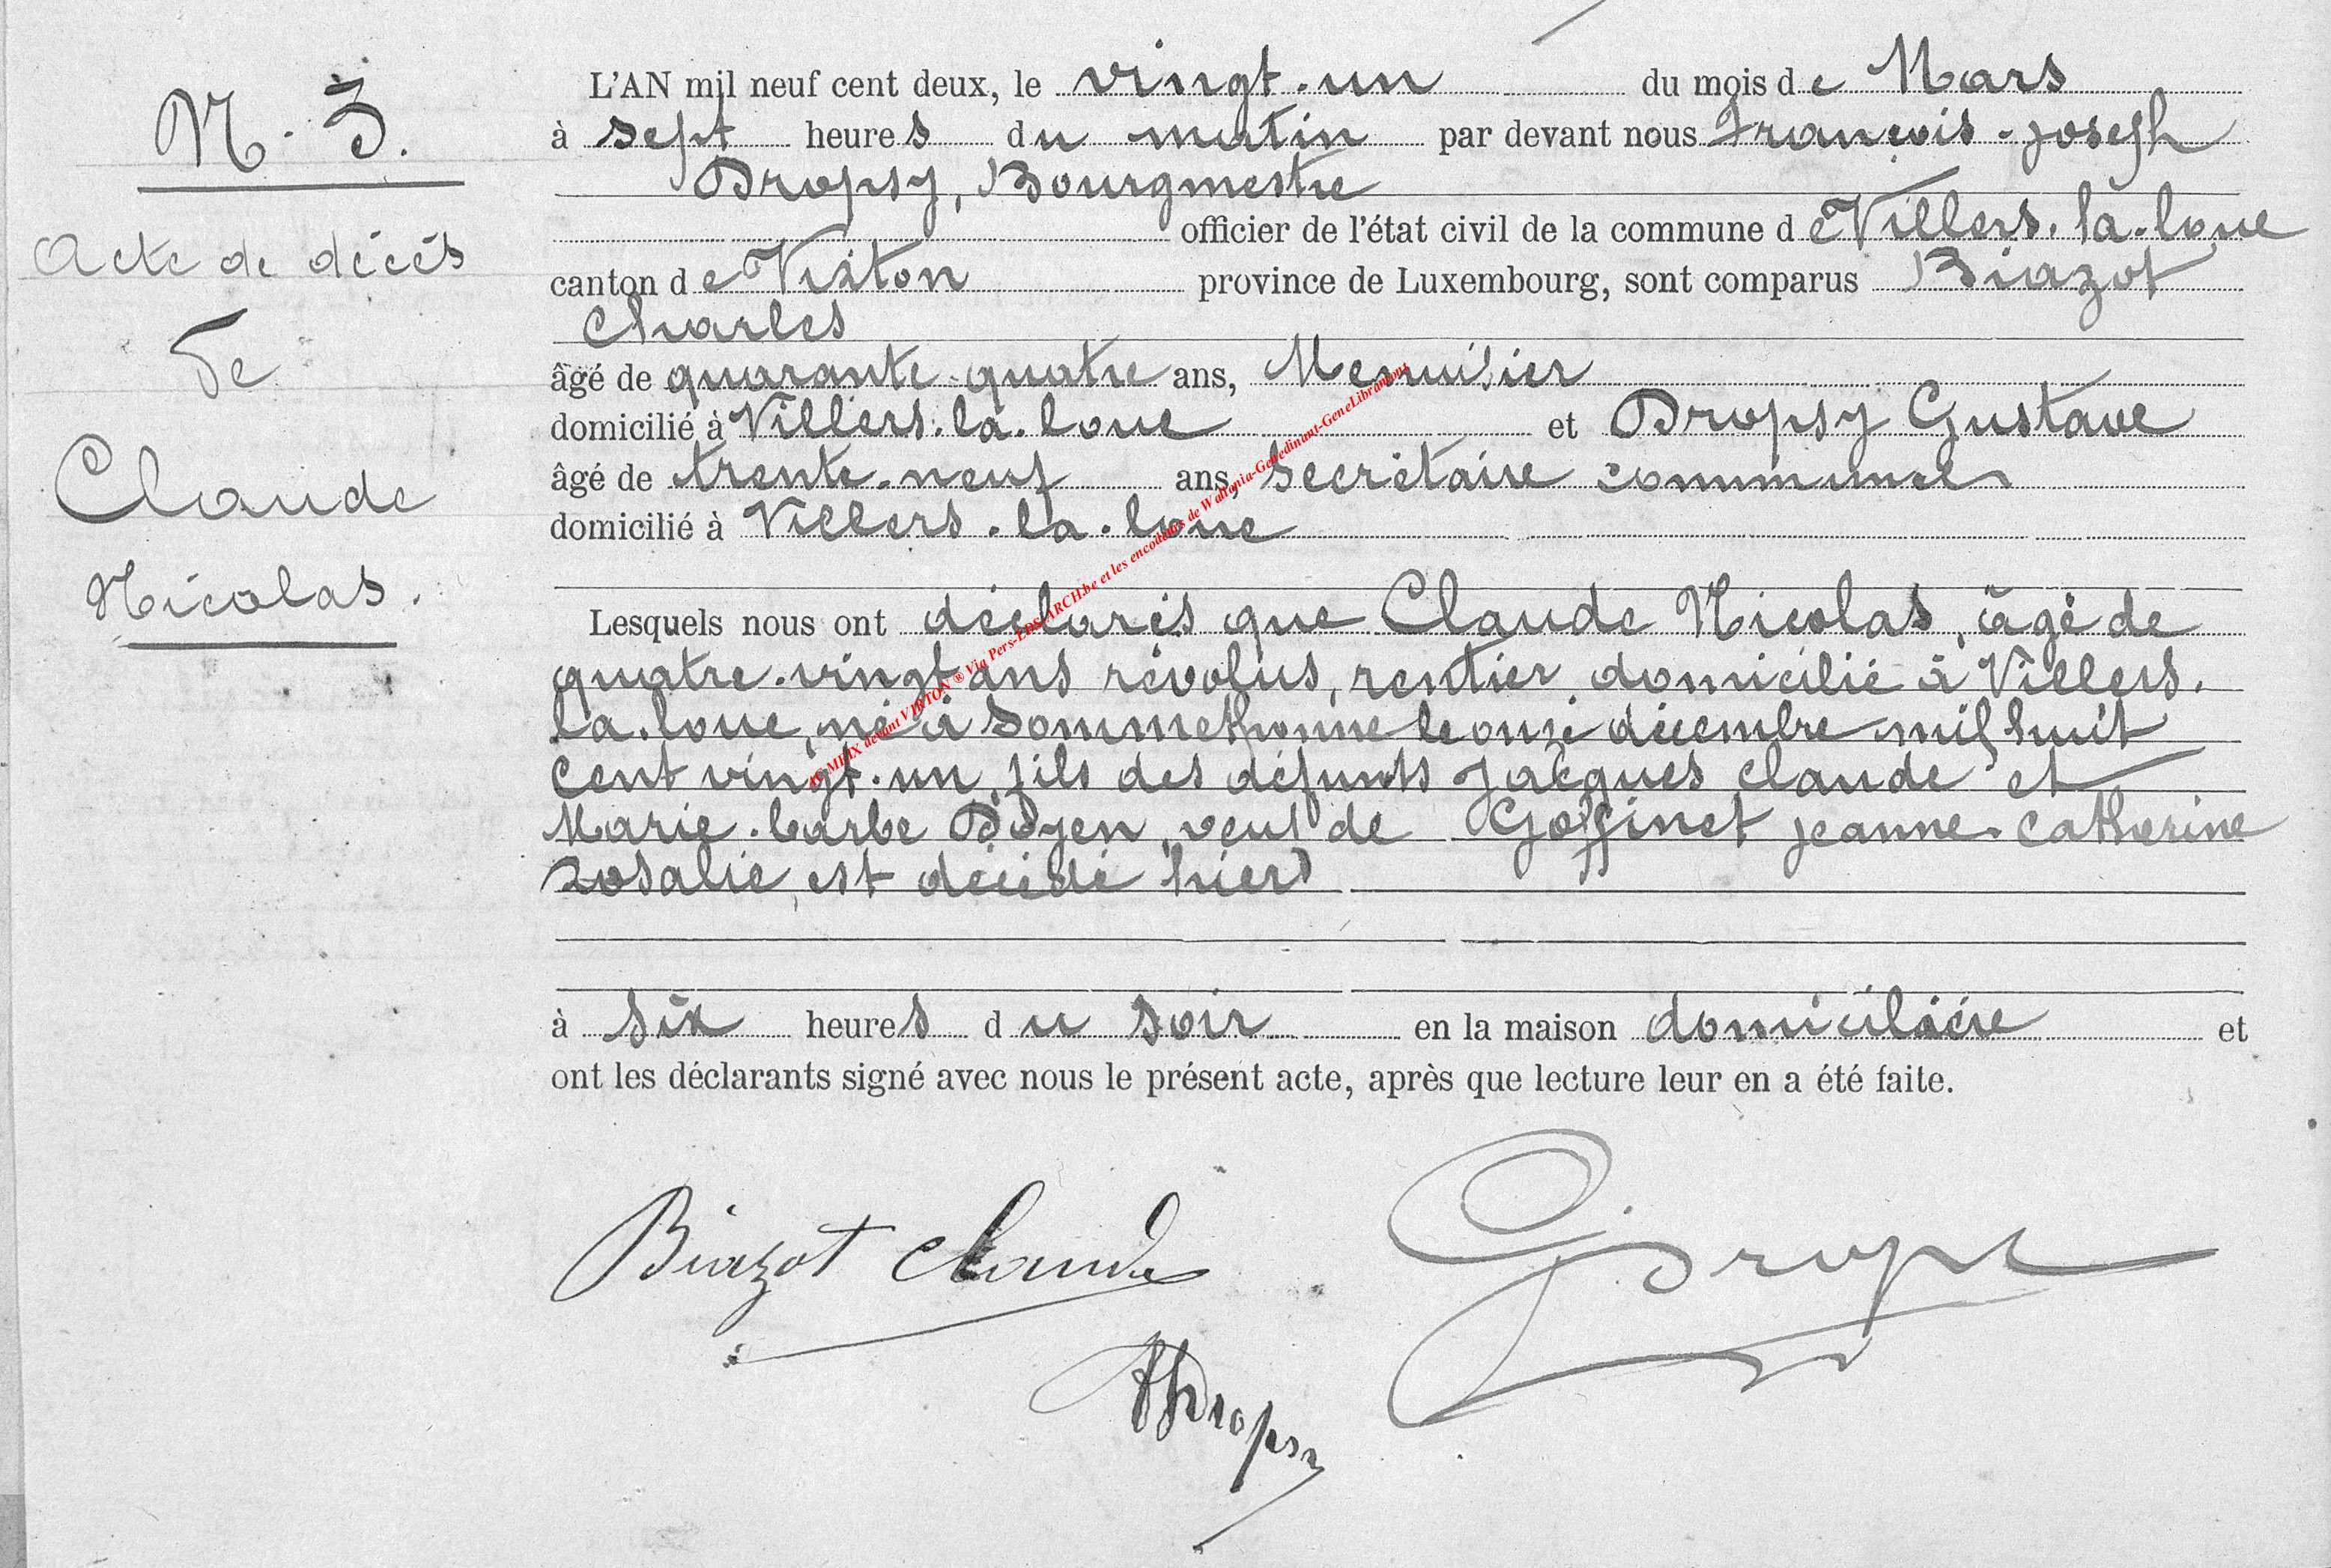 N. 3.
Acte de décès
De
Claude
Nicolas.
L'AN mil neuf cent deux, le vingt-un du mois de Mars
à sept heures du matin par devant nous François-Joseph
Dropsy, Bourgmestre
officier de l'état civil de la commune de Villers-la-loue
canton de Virton province de Luxembourg, sont comparus Biazot
Charles
âgé de quarante-quatre ans, Menuisier
domicilié à Villers-la-loue et Dropsy Gustave
âgé de trente-neuf ans, Secrétaire communal
domicilié à Villers-la-loue
Lesquels nous ont déclarés que Claude Nicolas, âgé de
quatre-vingt ans révolus, rentier domicilié à Villers-
la-loue, né à Sommethonne le onze décembre mil huit
cent vingt-un, fils des défunts Jacques Claude et
Marie-barbe Doyen, veuf de Goffinet Jeanne-Catherine
Rosalie, est décédé hier
à six heures du soir en la maison domiciliaire et
ont les déclarants signé avec nous le présent acte, après que lecture leur en a été faite.
Biazot Claude
Dropsy
Dropsy
MEIX devant VIRTON ® Via Pers-EDS-ARCH.be et les encodeurs de Wallonia-Genedinant-GeneLibramont